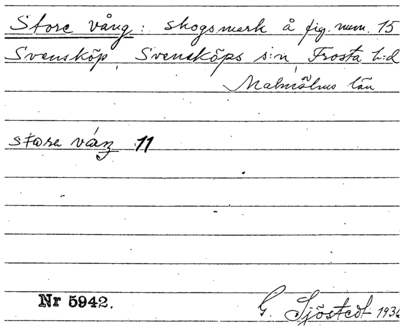 Store vång: skogsmark å fig. num. 15
Svensköp, Svensköps s:n, Frosta h:d
Malmöhus län
stora váŋ 11
Nr 5942.
G. Sjöstedt 1936